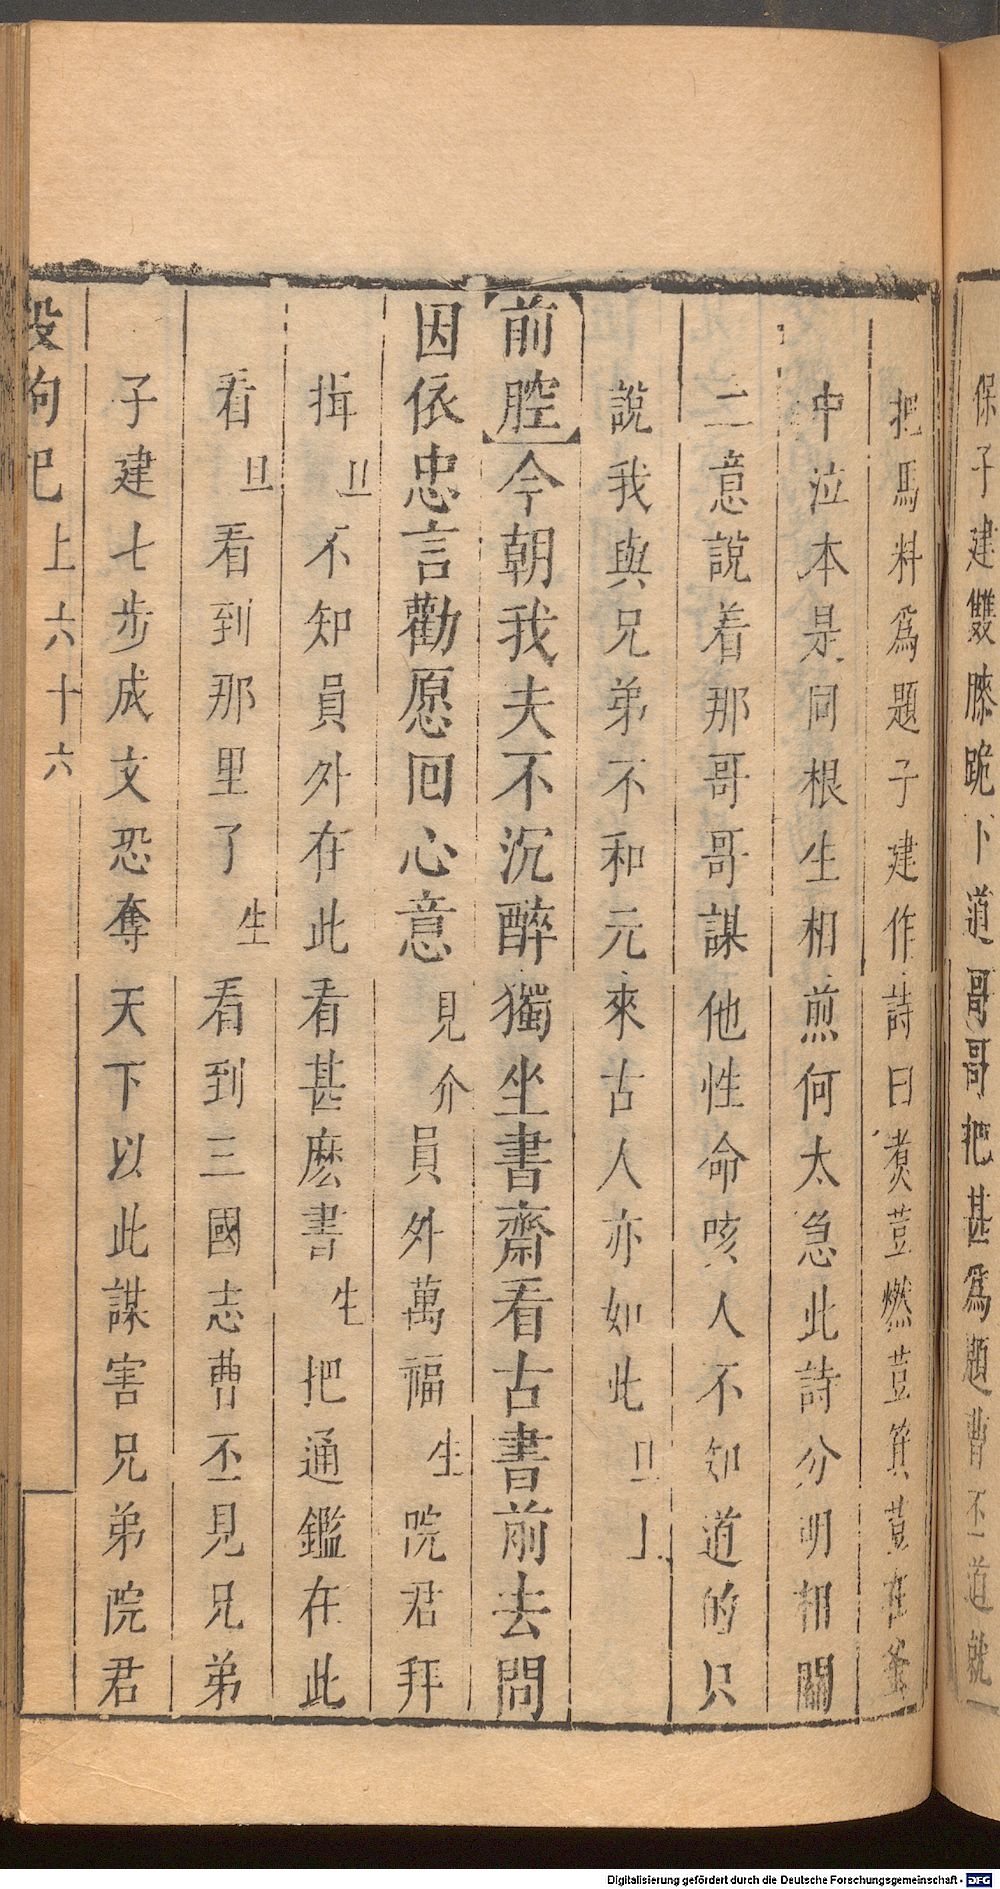 保子建雙膝跪下道哥哥把甚爲題曹丕道就
把馬料爲題子建作詩曰煑荳燃荳箕荳在釜
中泣本是同根生相煎何太急此詩分明相關
二意說着那哥哥謀他性命咳人不知道的只
說我與兄弟不和元來古人亦如此旦上
【前腔】今朝我夫不沉醉獨坐書齋看古書前去問
因依忠言勸愿囘心意見介員外萬福生院君拜
揖旦不知員外在此看甚麽書生把通鑑在此
看旦看到那里了生看到三國志曹丕見兄弟
子建七步成文恐奪天下以此謀害兄弟院君
殺狗巳上六十六
Digitalisierung gefördert durch die Deutsche Forschungsgemeinschaft - DFG